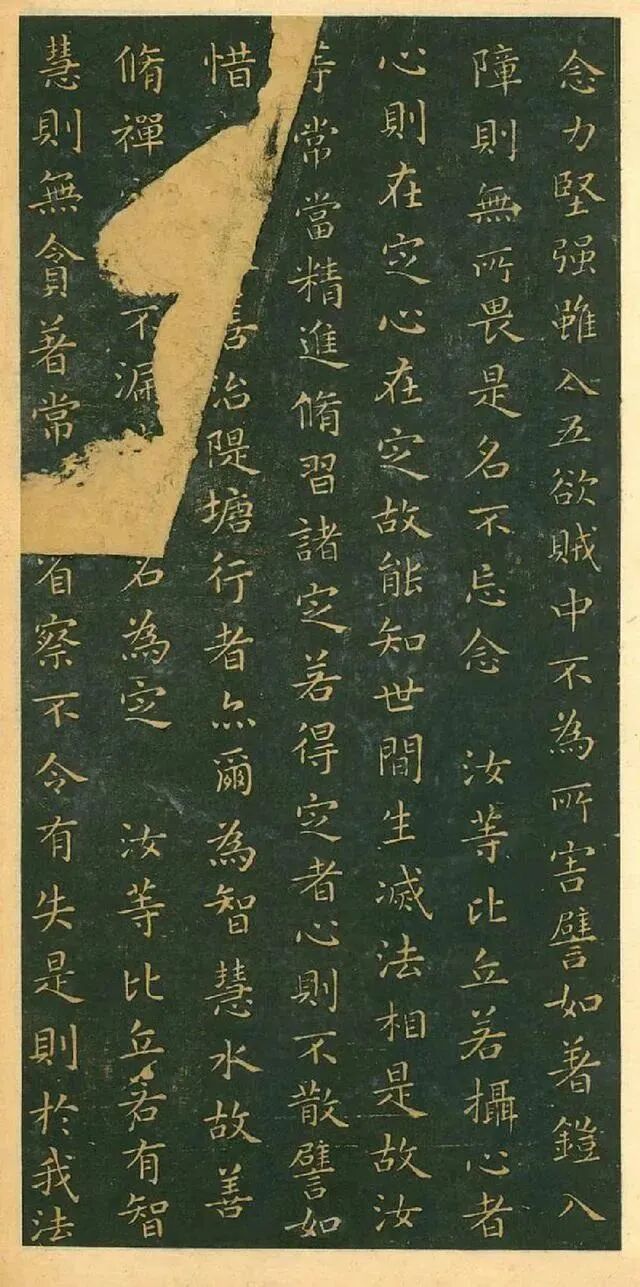 念力堅强雖入五欲賊中不為所害譬如著鎧入
障則無所畏是名不忘念 汝等比丘若攝心者
心則在定心在定故能知世間生滅法相是故汝
等常當精進脩習諸定若得定者心則不散譬如
惜 善治隄塘行者尒爾為智慧水故善
脩禪 不漏 名為定 汝等比丘若有智
慧則無貪著常 省察不令有失是則於我法